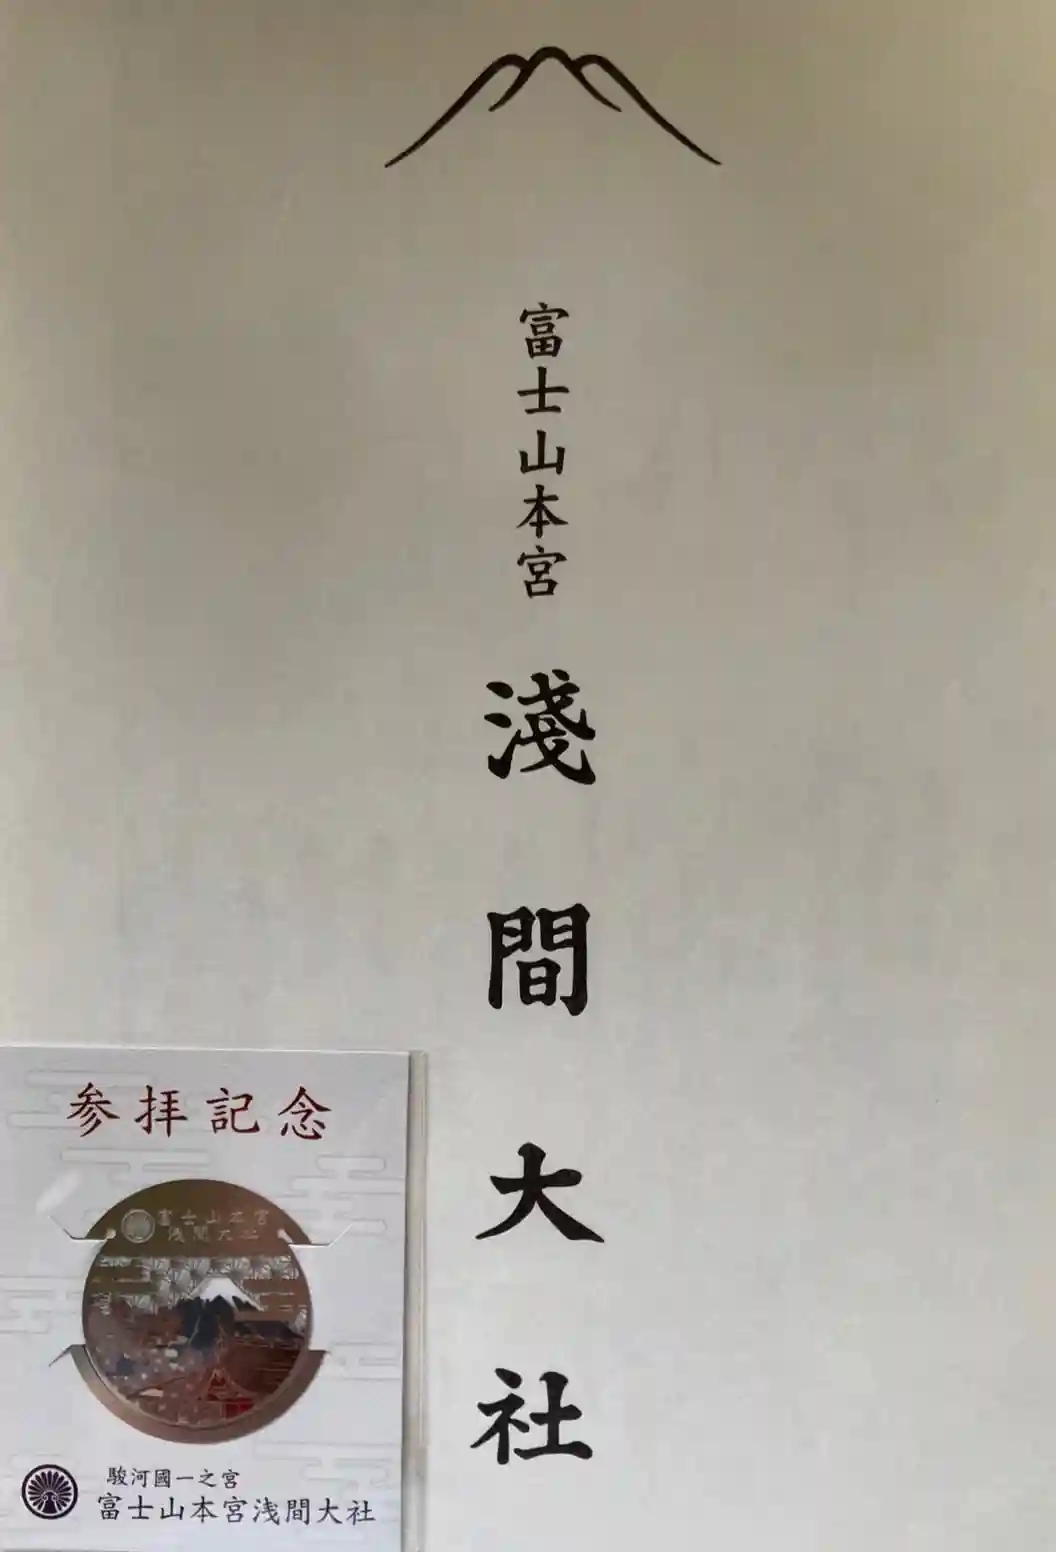 富士山本宮
淺間大社
参拝記念
富士山本宮
浅間大社
駿河國一之宮
富士山本宮浅間大社